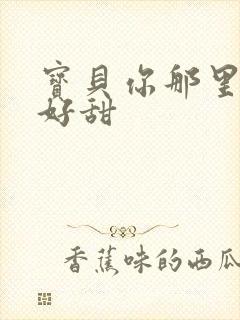 寶貝你那里
好甜
香蕉味的西瓜